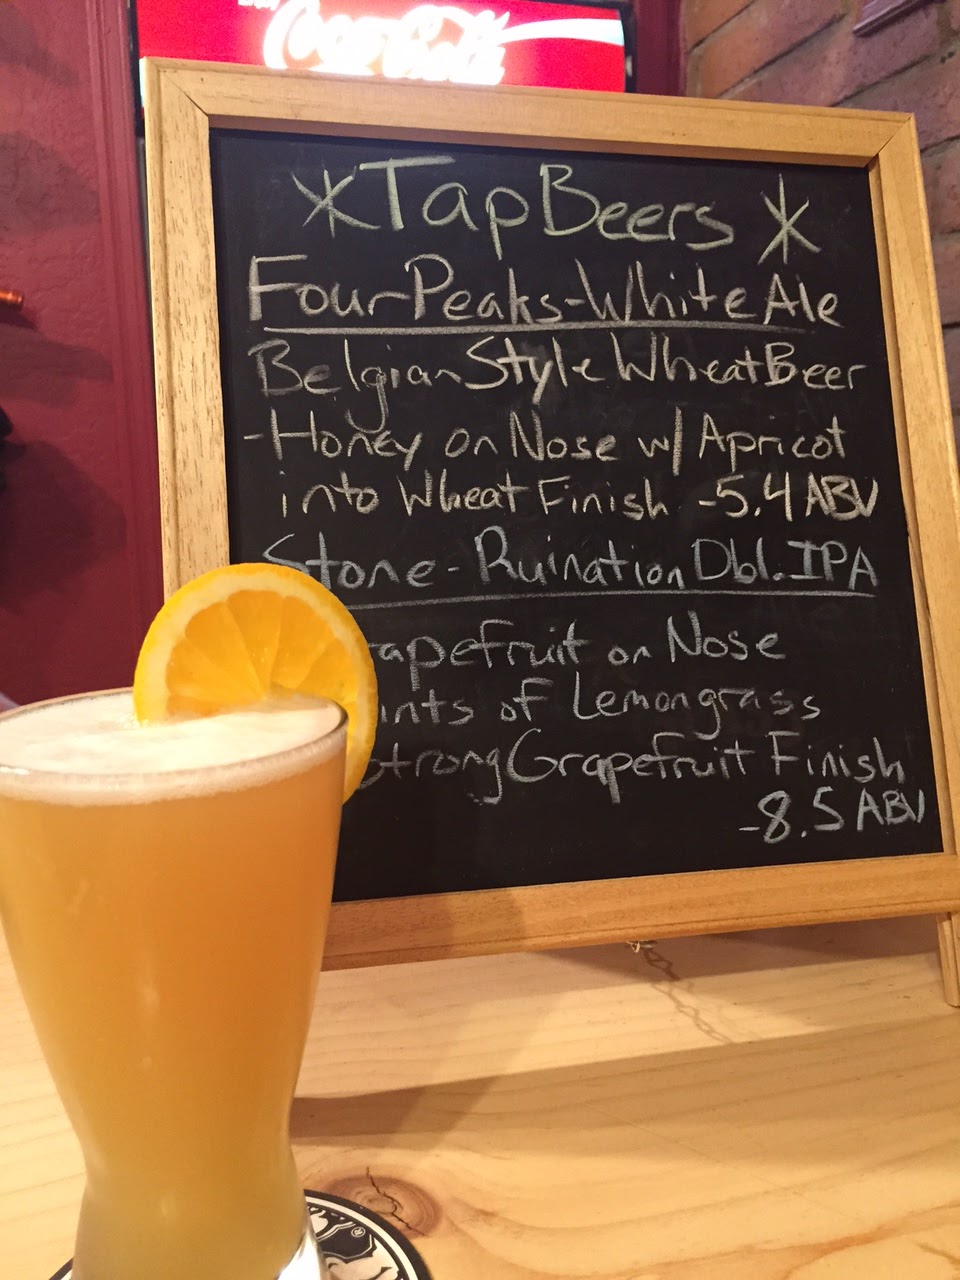 Enjoy
Coca-Cola
*Tap Beers*
Four Peaks-White Ale
Belgian Style Wheat Beer
-Honey on Nose w/ Apricot
into Wheat Finish -5.4 ABV
Stone-Ruination Dbl. IPA
rapefruit on Nose
ints of Lemongrass
Strong Grapefruit Finish
-8.5 ABV
®